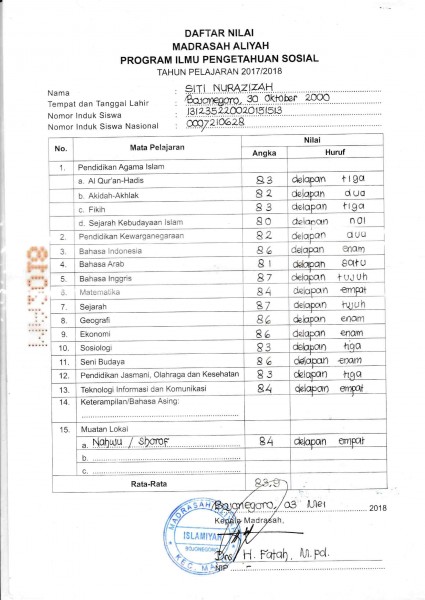 DAFTAR NILAI
MADRASAH ALIYAH
PROGRAM ILMU PENGETAHUAN SOSIAL
TAHUN PELAJARAN 2017/2018
Nama : SITI NURAZIZAH
Tempat dan Tanggal Lahir : Bojonegoro, 30 Oktober 2000
Nomor Induk Siswa : 131235220020151513
Nomor Induk Siswa Nasional : 0007210628
No. Mata Pelajaran Nilai
Angka Huruf
1. Pendidikan Agama Islam
a. Al Qur'an-Hadis 83 delapan tiga
b. Akidah-Akhlak 82 delapan dua
c. Fikih 83 delapan tiga
d. Sejarah Kebudayaan Islam 80 delapan nol
2. Pendidikan Kewarganegaraan 82 delapan dua
3. Bahasa Indonesia 86 delapan enam
4. Bahasa Arab 81 delapan satu
5. Bahasa Inggris 87 delapan tujuh
6. Matematika 84 delapan empat
7. Sejarah 87 delapan tujuh
8. Geografi 86 delapan enam
9. Ekonomi 86 delapan enam
10. Sosiologi 83 delapan tiga
11. Seni Budaya 86 delapan enam
12. Pendidikan Jasmani, Olahraga dan Kesehatan 83 delapan tiga
13. Teknologi Informasi dan Komunikasi 84 delapan empat
14. Keterampilan/Bahasa Asing:
15. Muatan Lokal
a. Nahwu / Shorof 84 delapan empat
b.
c.
Rata-Rata 83,9
Bojonegoro, 03 Mei 2018
Kepala Madrasah,
MADRASAH
ISLAMIYAH
BOJONEGORO
KEC.
Drs. H. Fatah, M.Pd.
NIP -